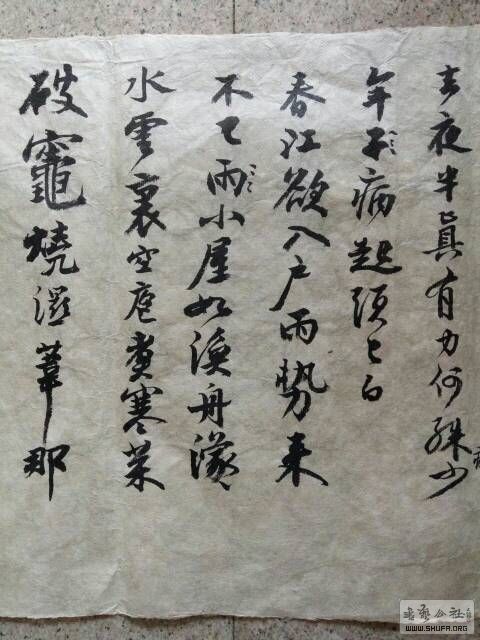 去夜半真有力何殊少
年子病起頭已白
春江欲入戶雨勢来
不已雨小屋如漁舟濛々
水雲裏空庖煮寒菜
破竈燒濕葦那
書藝公社
WWW.SHUFA.ORG